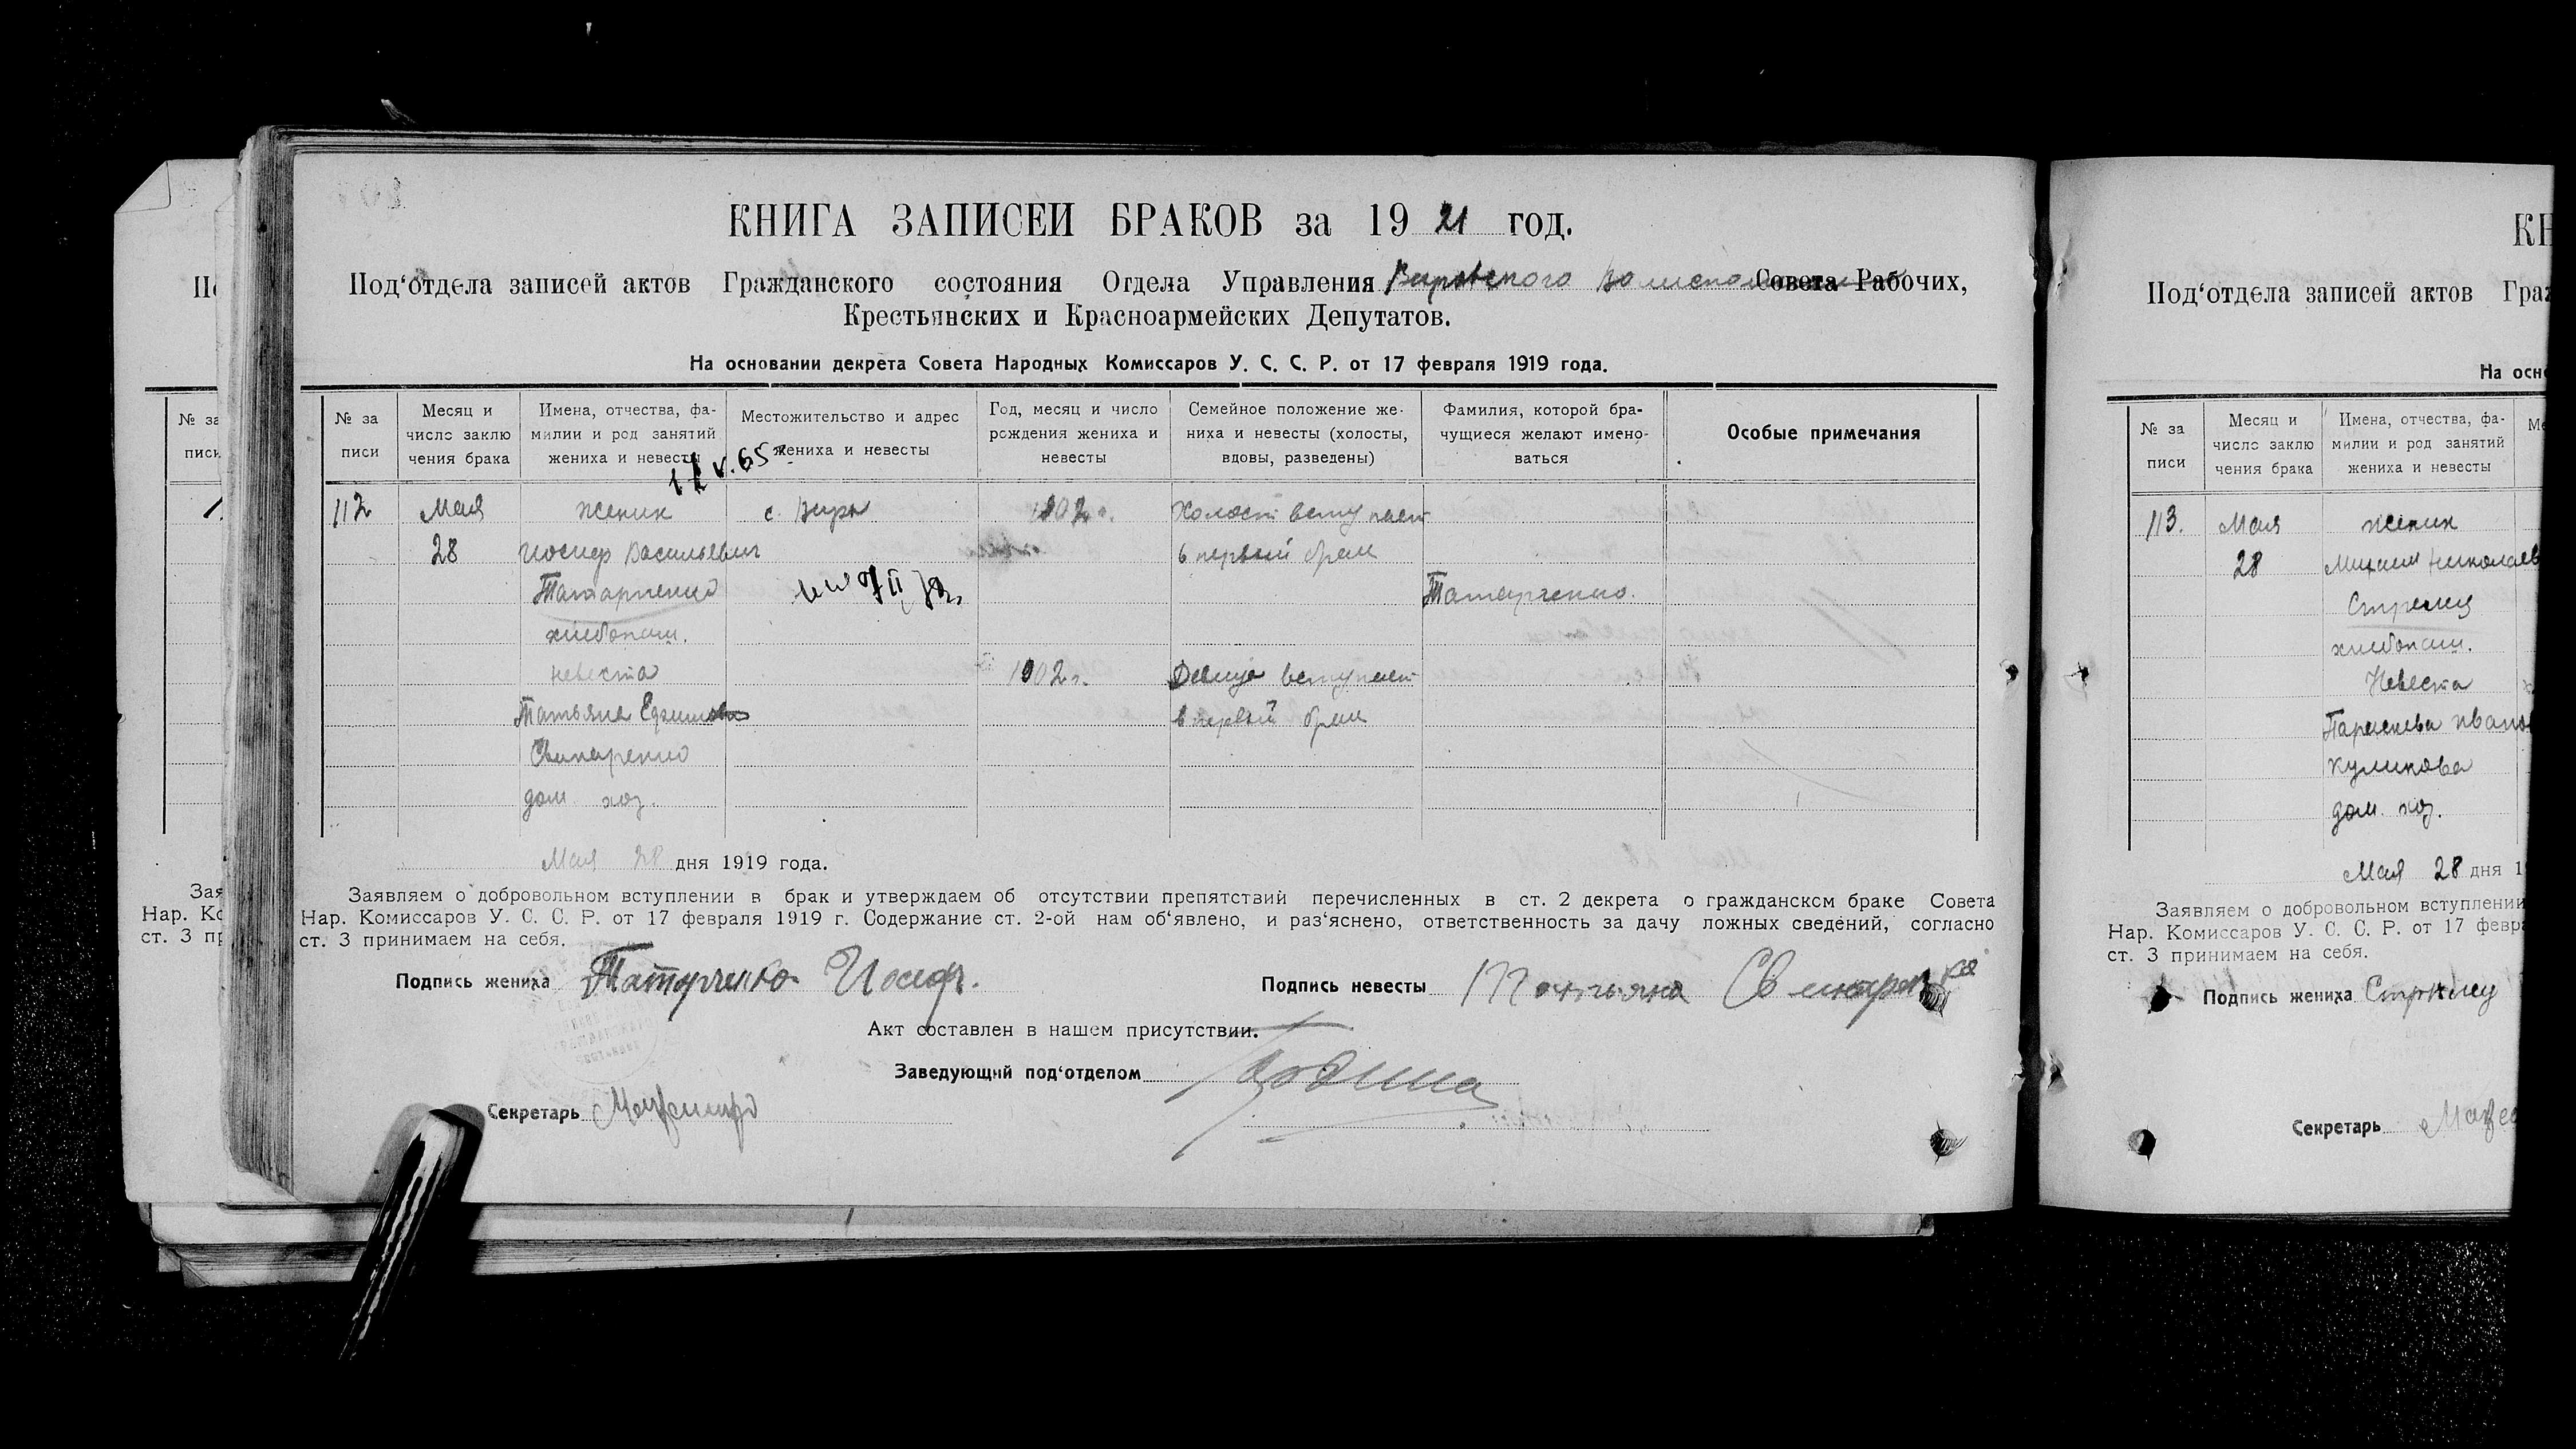 КНИГА ЗАПИСЕЙ БРАКОВ за 1921 год.
Под‘отдела записей актов Гражданского состояния Отдела Управления Вировского Совета Рабочих,
Крестьянских и Красноармейских Депутатов.
На основании декрета Совета Народных Комиссаров У. С. С. Р. от 17 февраля 1919 года.
№ за писи
Месяц и число заклю чения брака
Имена, отчества, фа- милии и род занятий жениха и невесты
Местожительство и адрес жениха и невесты
Год, месяц и число рождения жениха и невесты
Семейное положение же- ниха и невесты (холосты, вдовы, разведены)
Фамилия, которой бра- чущиеся желают имено- ваться
Особые примечания
112 Мая жених с. Виры 1902 г. Холост вступает
28 Иосиф Васильевич в первый брак
Татарченко Татарченко
хлебопаш.
невеста 1902 г. Девица вступает
Татьяна Ефимова в первый брак
Свинаренко
дом. хоз.
Мая 28 дня 1919 года.
Заявляем о добровольном вступлении в брак и утверждаем об отсутствии препятствий перечисленных в ст. 2 декрета о гражданском браке Совета
Нар. Комиссаров У. С. С. Р. от 17 февраля 1919 г. Содержание ст. 2-ой нам об‘явлено, и раз‘яснено, ответственность за дачу ложных сведений, согласно
ст. 3 принимаем на себя.
Подпись жениха Татарченко Иосиф.
Подпись невесты Татьяна Свинаренко
Акт составлен в нашем присутствии.
Заведующий под‘отделом
Секретарь
КН
Под‘отдела записей актов Граж
На осно
№ за писи
Месяц и число заклю чения брака
Имена, отчества, фа- милии и род занятий жениха и невесты
113. Мая жених
28 Михаил Николаев
Стрелец
хлебопаш.
Невеста
Параскева Иванов
Куликова
дом. хоз.
Мая 28 дня 1
Заявляем о добровольном вступлении
Нар. Комиссаров У. С. С. Р. от 17 февра
ст. 3 принимаем на себя.
Подпись жениха
Секретарь